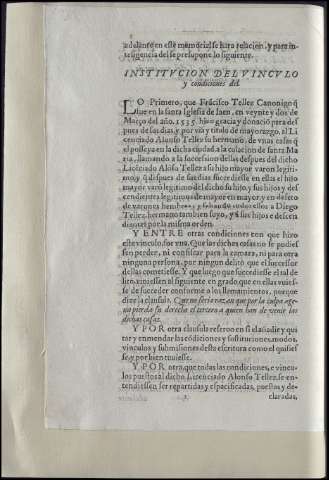 adelante en este memorial se hara relacion, y para in-
teligencia del se presupone lo siguiente.
INSTITVCION DEL VINCVLO
y condiciones del.
LO Primero, que Frãcisco Tellez Canonigo q̃
fue en la santa Iglesia de Iaen, en veynte y dos de
Março del año. 1535. hizo gracia y donaciõ pera des
pues de sus dias, y por via y titulo de mayorazgo, al Li
cenciado Alonso Tellez su hermano, de vnas casas q̃
el posseya en la dicha ciudad a la colacion de santa Ma
ria, llamando a la succession dellas despues del dicho
Licẽciado Alõso Tellez a su hijo mayor varon legiti-
mo, y q̃ despues de sus dias succediesse en ellas el hijo
mayor varõ legitimo del dicho su hijo, y sus hijos y des
cendientes legitimos de mayor en mayor, y en defeto
de varones hembras, y a Diego
Tellez, hermano tambien suyo, y a sus hijos e descen
dientes por la misma orden.
Y ENTRE otras condiciones con que hizo
este vinculo, fue vna. Que las dichas casas no se pudies
sen perder, ni confiscar para la camara, ni para otra
ninguna persona, por ningun delito que el successor
dellas cometiesse. Y que luego que sucediesse el tal de
lito, passassen al siguiente en grado que en ellas vuies-
se de succeder conforme a los llamamientos, porque
dize la clausula. Que no seria razon que por la culpa age-
na pierda su derecho el tercero a quien han de venir las
dichas casas.
Y POR otra clausula reseruo en si el añadir y qui
tar y enmendar las cõdiciones y sostituciones, modos,
vinculos y submisiones desta escritura como el quisies
se, y por bien tuuiesse.
Y POR otra, que todas las condiciones, e vincu-
los puestos al dicho Licenciado Alonso Tellez, se en-
tendiessen ser repartidas y especificadas, puestas y de-
claradas,